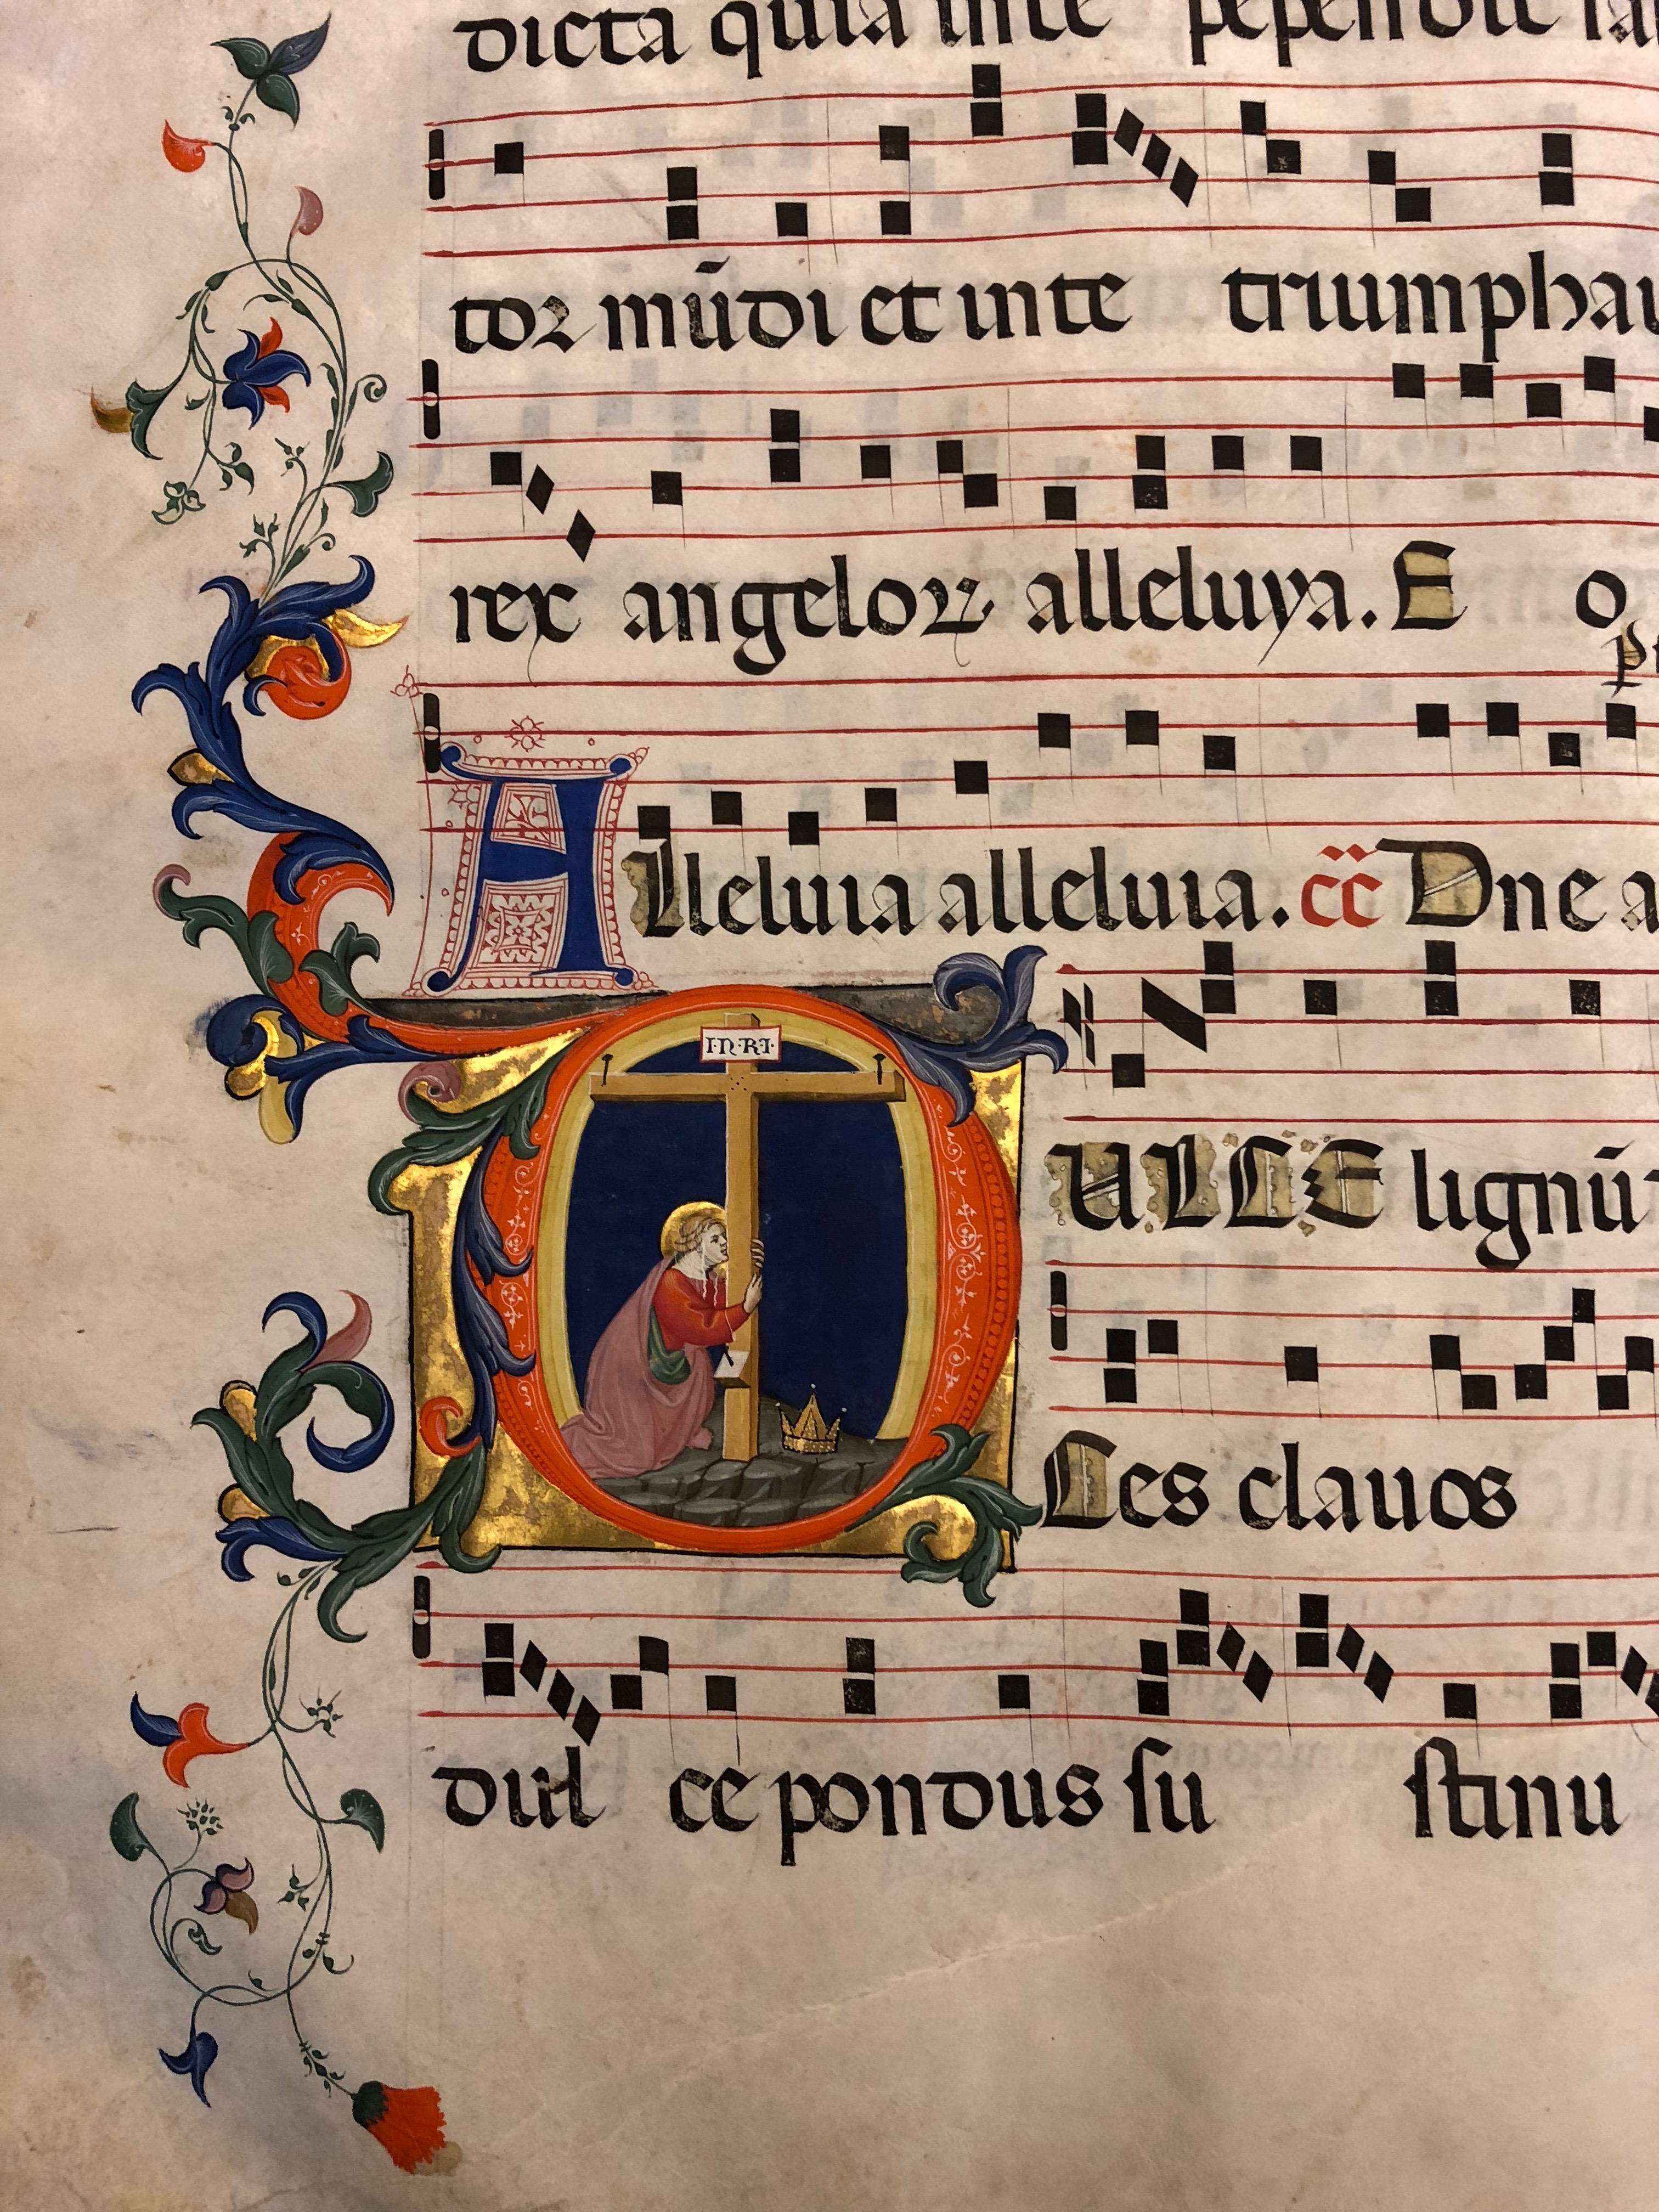 dicta quia inte pependit sal
tor mūdi et inte triumphau
rex angeloꝝ alleluya. E o
Alleluia alleluia. c̈c̈ Dne a
I·N·RI·
DULCE lignū
Dulces clauos
dul ce pondus su stinu